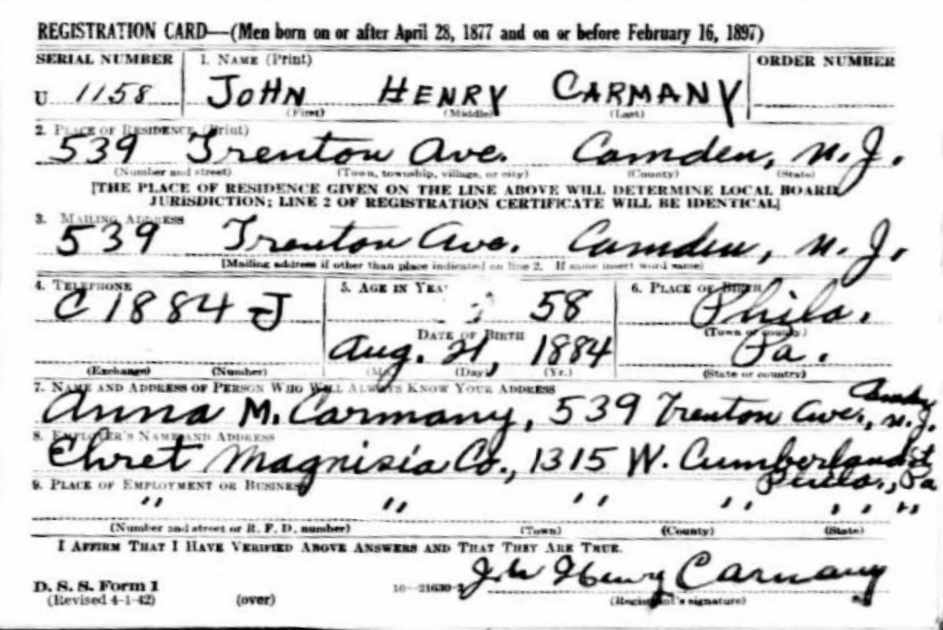 REGISTRATION CARD—(Men born on or after April 28, 1877 and on or before February 16, 1897)
SERIAL NUMBER 1. NAME (Print) ORDER NUMBER
U 1158 JOHN HENRY CARMANY
(First) (Middle) (Last)
2. PLACE OF RESIDENCE (Print)
539 Trenton Ave. Camden, N.J.
(Number and street) (Town, township, village, or city) (County) (State)
[THE PLACE OF RESIDENCE GIVEN ON THE LINE ABOVE WILL DETERMINE LOCAL BOARD
JURISDICTION; LINE 2 OF REGISTRATION CERTIFICATE WILL BE IDENTICAL]
3. MAILING ADDRESS
539 Trenton Ave. Camden, N.J.
[Mailing address if other than place indicated on line 2. If same insert word same]
4. TELEPHONE 5. AGE IN YEARS 6. PLACE OF BIRTH
C 1884 J 58 Phila.
DATE OF BIRTH (Town or county)
Aug. 21, 1884 Pa.
(Exchange) (Number) (Mo.) (Day) (Yr.) (State or country)
7. NAME AND ADDRESS OF PERSON WHO WILL ALWAYS KNOW YOUR ADDRESS
Anna M. Carmany, 539 Trenton Ave., Camden, N.J.
8. EMPLOYER'S NAME AND ADDRESS
Ehret Magnisia Co., 1315 W. Cumberland St
Phila., Pa
9. PLACE OF EMPLOYMENT OR BUSINESS
" " " " " " "
(Number and street or R. F. D. number) (Town) (County) (State)
I AFFIRM THAT I HAVE VERIFIED ABOVE ANSWERS AND THAT THEY ARE TRUE.
John Henry Carmany
D. S. S. Form 1
(Revised 4-1-42) (over) 16—21630-2 (Registrant's signature)